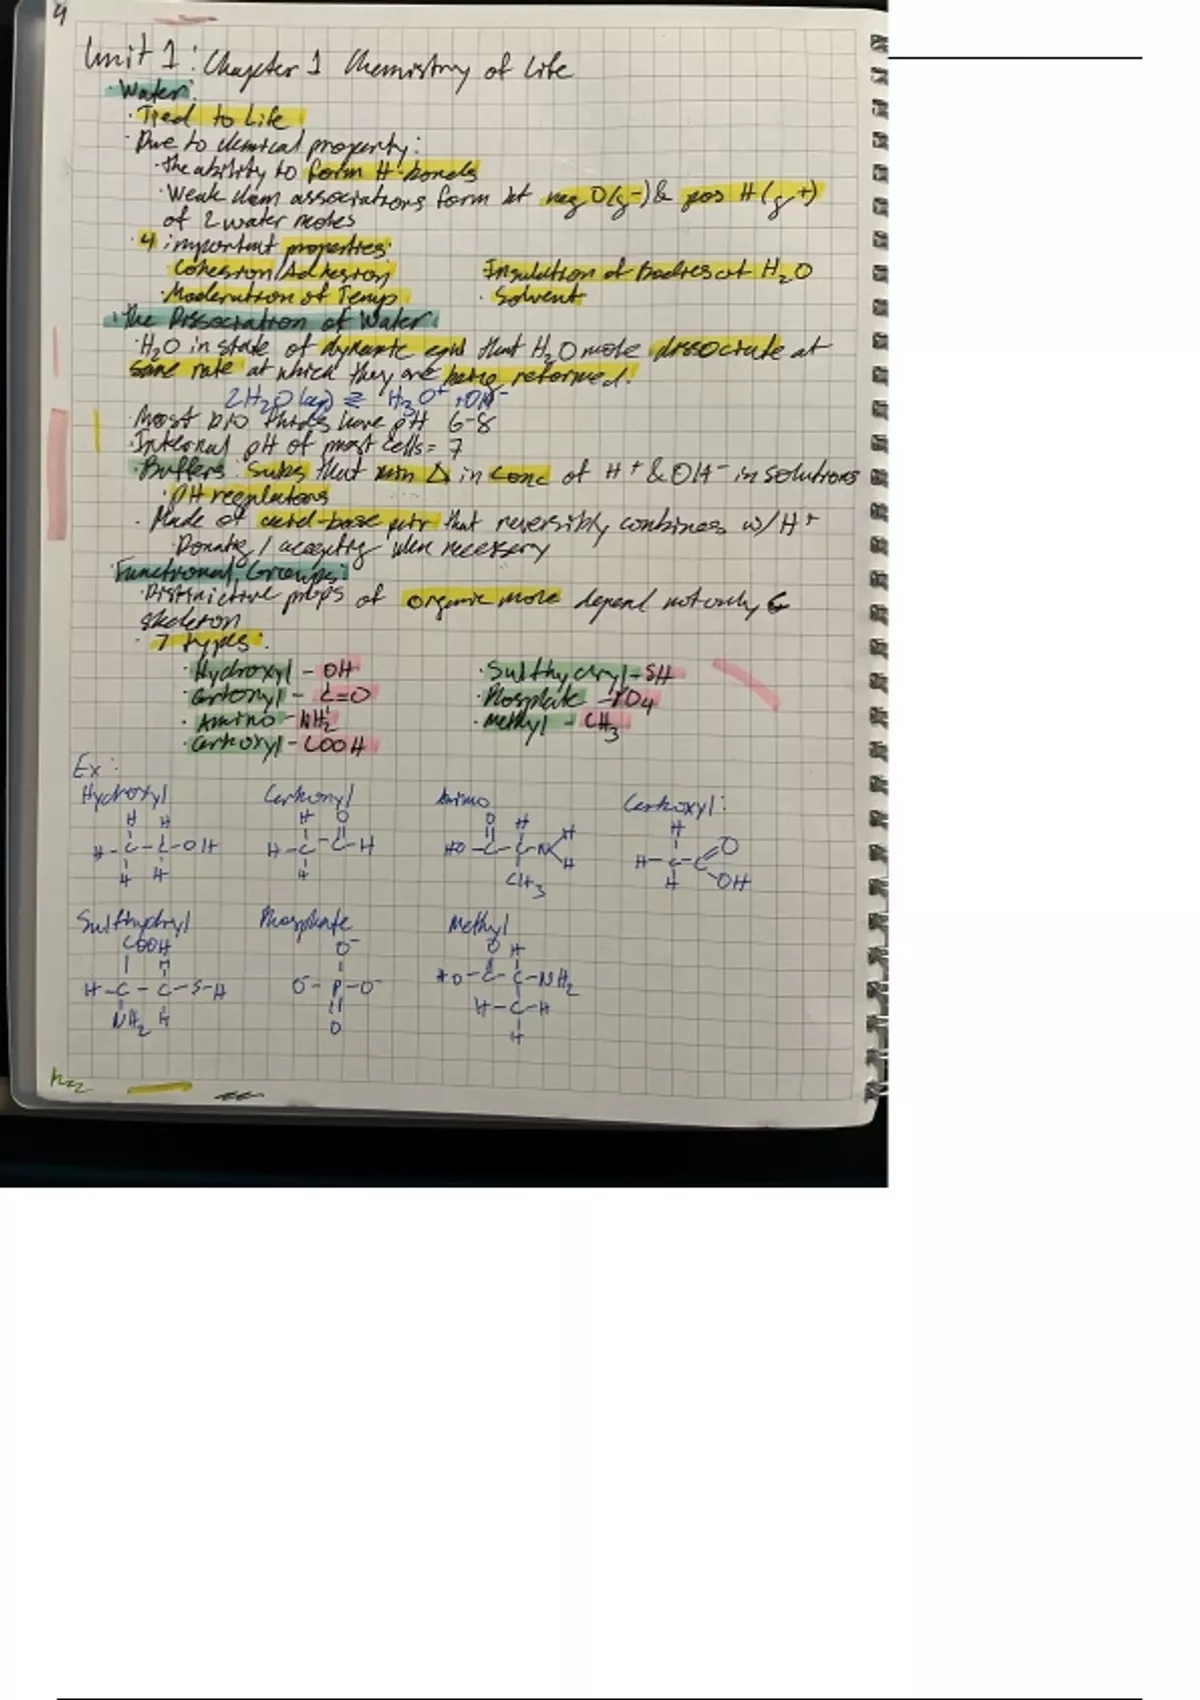 4
Unit 1: Chapter 1 Chemistry of Life
· Water:
· Tied to Life
· Due to chemical property:
· the ability to form H-bonds
· Weak chem associations form bt neg O(g-) & pos H(g+)
of 2 water moles
· 4 important properties:
· Cohesion/Adhesion
· Insulation of Bodies of H2O
· Moderation of Temp
· Solvent
· The Dissociation of Water:
· H2O in state of dynamic equi that H2O mole dissociate at
same rate at which they are being reformed!
2H2O(aq) ⇌ H3O+ + OH-
· Most bio fluids have pH 6-8
· Internal pH of most cells = 7
· Buffers: Subs that min Δ in conc of H+ & OH- in solutions
· pH regulators
· Made of acid-base pair that reversibly combines w/ H+
Donating / accepting when necessary
· Functional Groups:
· Distinictive props of organic mole depend not only C
skeleton
· 7 types:
· Hydroxyl - OH
· Sulfhydryl - SH
· Carbonyl - C=O
· Phosphate - PO4
· Amino - NH2
· Methyl - CH3
· Carboxyl - COOH
Ex:
Hydroxyl Carbonyl Amino Carboxyl:
H H H O O H H H
H-C-C-OH H-C-C-H HO-C-C-N H H-C-C O
H H H CH3 H OH
Sulfhydryl Phosphate Methyl
COOH O- O H
H
H-C-C-S-H O--P-O- HO-C-C-NH2
NH2 H O H-C-H
H